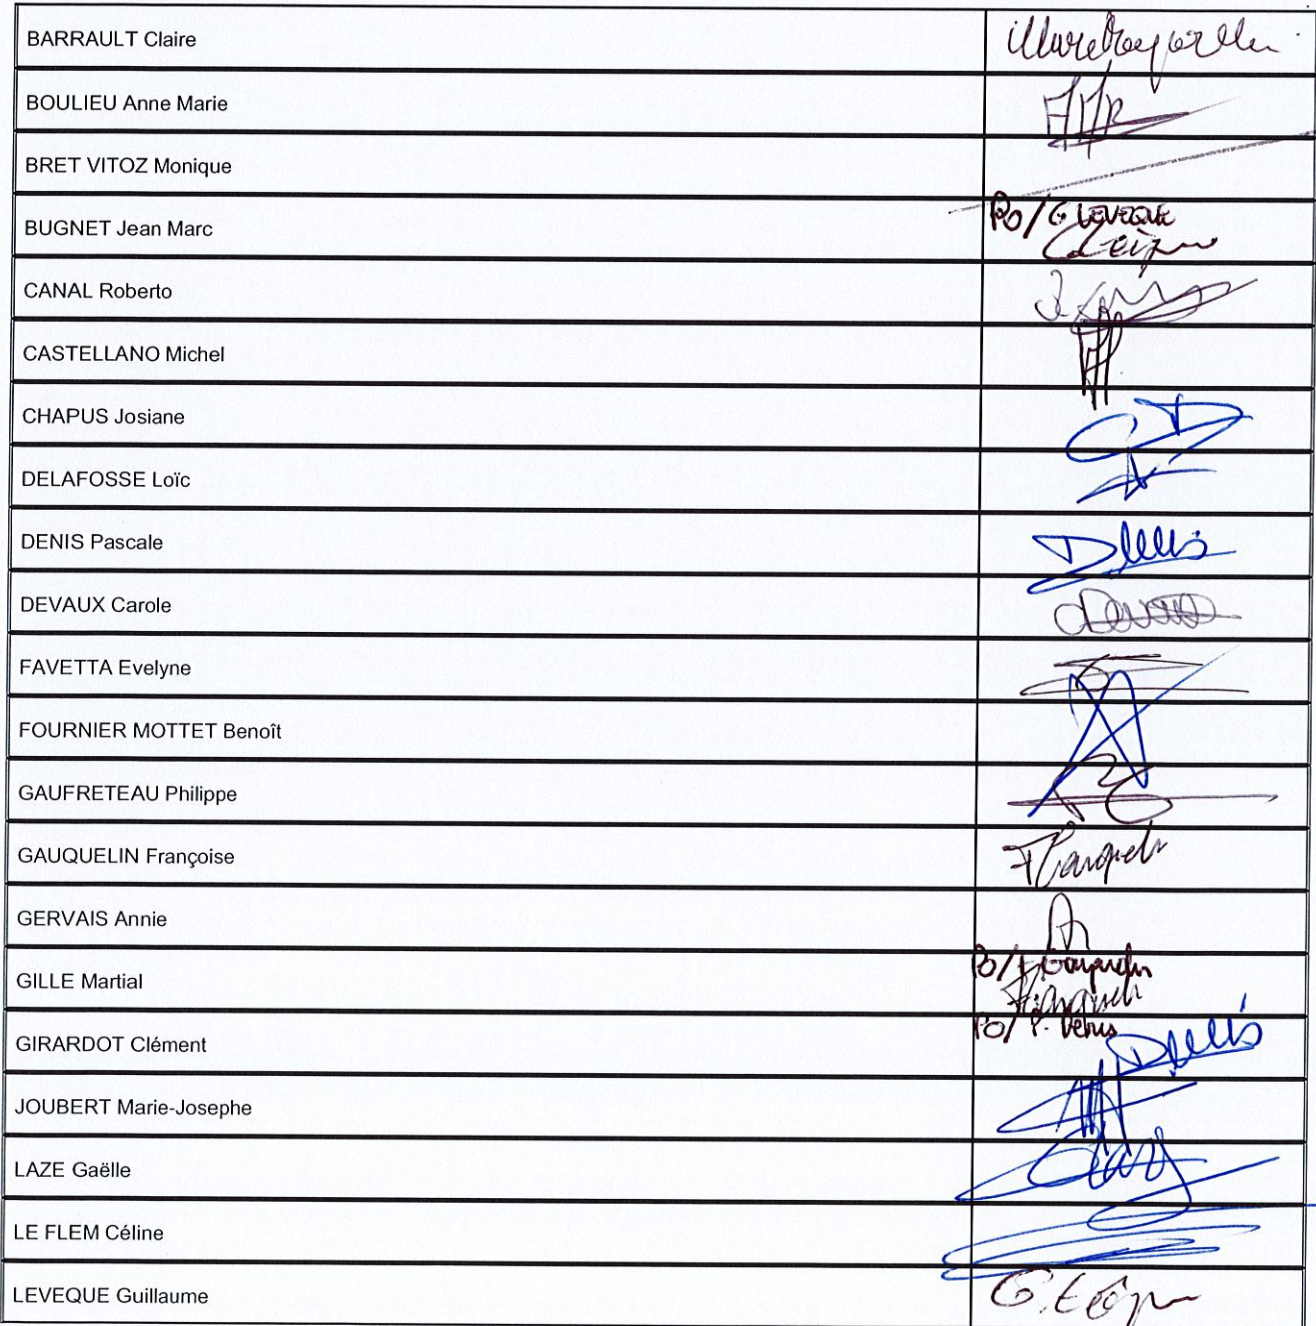 BARRAULT Claire
BOULIEU Anne Marie
BRET VITOZ Monique
BUGNET Jean Marc
Po/ G LEVEQUE
CANAL Roberto
CASTELLANO Michel
CHAPUS Josiane
DELAFOSSE Loïc
DENIS Pascale
Denis
DEVAUX Carole
FAVETTA Evelyne
FOURNIER MOTTET Benoît
GAUFRETEAU Philippe
GAUQUELIN Françoise
GERVAIS Annie
GILLE Martial
Po/
GIRARDOT Clément
Po/ P. Denis
Denis
JOUBERT Marie-Josephe
LAZE Gaëlle
LE FLEM Céline
LEVEQUE Guillaume